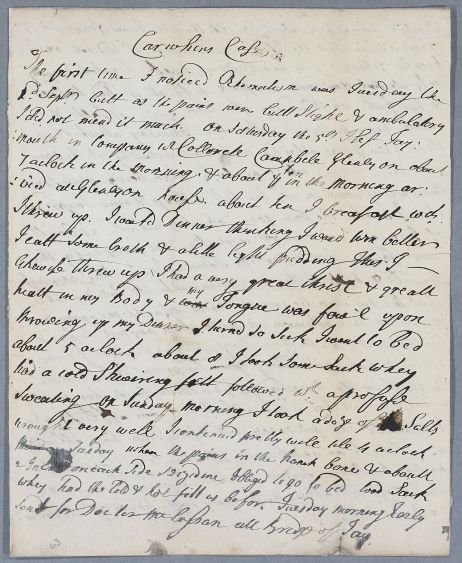 Carwhins Case
The first time I noticed Rhumatism was Tuesday the
Septr butt as the pains were butt slight & ambulatory
I did not mend it much on Saturday the 5th I left Tay:
mouth in Company wt Collonele Campbele Glenlyon about
7 aclock in the morning, & about ten in the morning ar:
:rived att Glenlyon house about ten I breakfast wch
I threw up. I would Dinner thinking I would turn better
I eatt some broth & a litle light pudding this I
likewise threw up I had a very great thirst & great
heatt in my Body & my Tongue was foul upon
throwing up my Dinner I turnd so seek I went to bed
about 5 aclock about 8 I took some Sack whey
had a cold Shivering fitt followed wt a profuse
Sweating on Sunday morning I took a dose of Salts
wrought very well I contenued pretty well till 4 aclock
Sunday when the pains in the hanch bone & aboutt
2 Inches on each side Begane oblig'd to go to bed took Sack
whey had the Cold & hot fitt as before Tuesday morning Early
Sent for Docter McCossan att bridge of Tay.
63